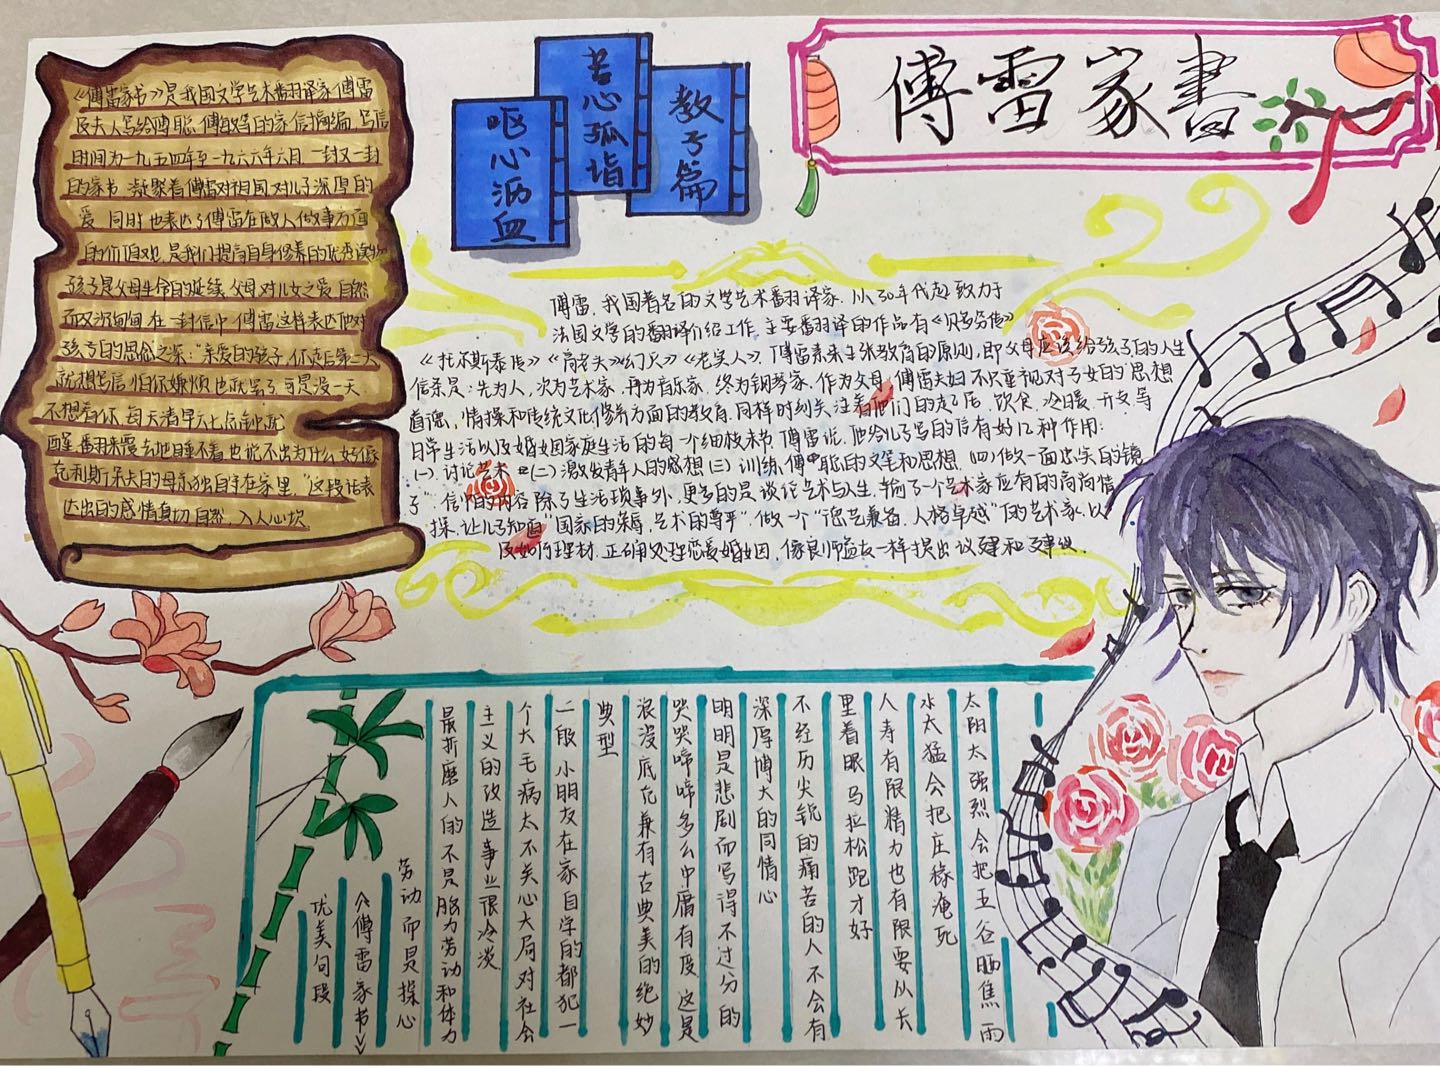 傅雷家書
教子篇
苦心孤诣
呕心沥血
《傅雷家书》是我国文学艺术翻译家傅雷
及夫人写给傅聪、傅敏的家信摘编，写信
时间为一九五四年至一九六六年六月。一封又一封
的家书，凝聚着傅雷对祖国，对儿子深厚的
爱。同时也表达了傅雷在做人做事方面
的价值观，是我们提高自身修养的优秀读物
孩子是父母生命的延续，父母对儿女之爱，自然
而又沉甸甸，在一封信中，傅雷这样表达他对
孩子的思念之深："亲爱的孩子，你走后第二天
就想写信，怕你嫌烦，也就罢了。可是没一天
不想着你，每天清早六七点钟就
醒，翻来覆去地睡不着，也说不出为什么。好像
克利斯朵夫的母亲独自守在家里，"这段话表
达出的感情真切自然，入人心坎
傅雷，我国著名的文学艺术翻译家，从30年代起，致力于
法国文学的翻译介绍工作，主要翻译的作品有《贝多芬传》
《托尔斯泰传》《高老头》《幻灭》《老实人》，傅雷素来主张教育的原则，即父母应该给孩子的人生
信条是：先为人，次为艺术家，再为音乐家，终为钢琴家，作为父母，傅雷夫妇不只重视对子女的思想
道德、情操和传统文化修养方面的教育，同样时刻关注着他们的生活、饮食、冷暖、开支等
日常生活以及婚姻家庭生活的每一个细枝末节，傅雷说，他给儿子写的信有好几种作用：
(一)讨论艺术 (二)激发青年人的感想 (三)训练傅聪的文笔和思想 (四)做一面忠实的镜
子"信中的内容，除了生活琐事外，更多的是谈论艺术与人生，一个艺术家应有的高尚情
操，让儿子知道"国家的荣辱，艺术的尊严"，做一个"德艺兼备，人格卓越"的艺术家，以
及如何理材，正确处理恋爱婚姻，像良师益友一样提出议建和
太阳太强烈会把五谷晒焦雨
水太猛会把庄稼淹死
人寿有限精力也有限要从长
里着眼马拉松跑才好
不经历尖锐的痛苦的人不会有
深厚博大的同情心
明明是悲剧而写得不过分的
哭哭啼啼多么中庸有度这是
浪漫底克兼有古典美的绝妙
典型
二段小朋友在家自学的都犯一
个大毛病太不关心大局对社会
主义的改造事业很冷淡
最折磨人的不是脑力劳动和体力
劳动而是操心
《傅雷家书》
优美句段